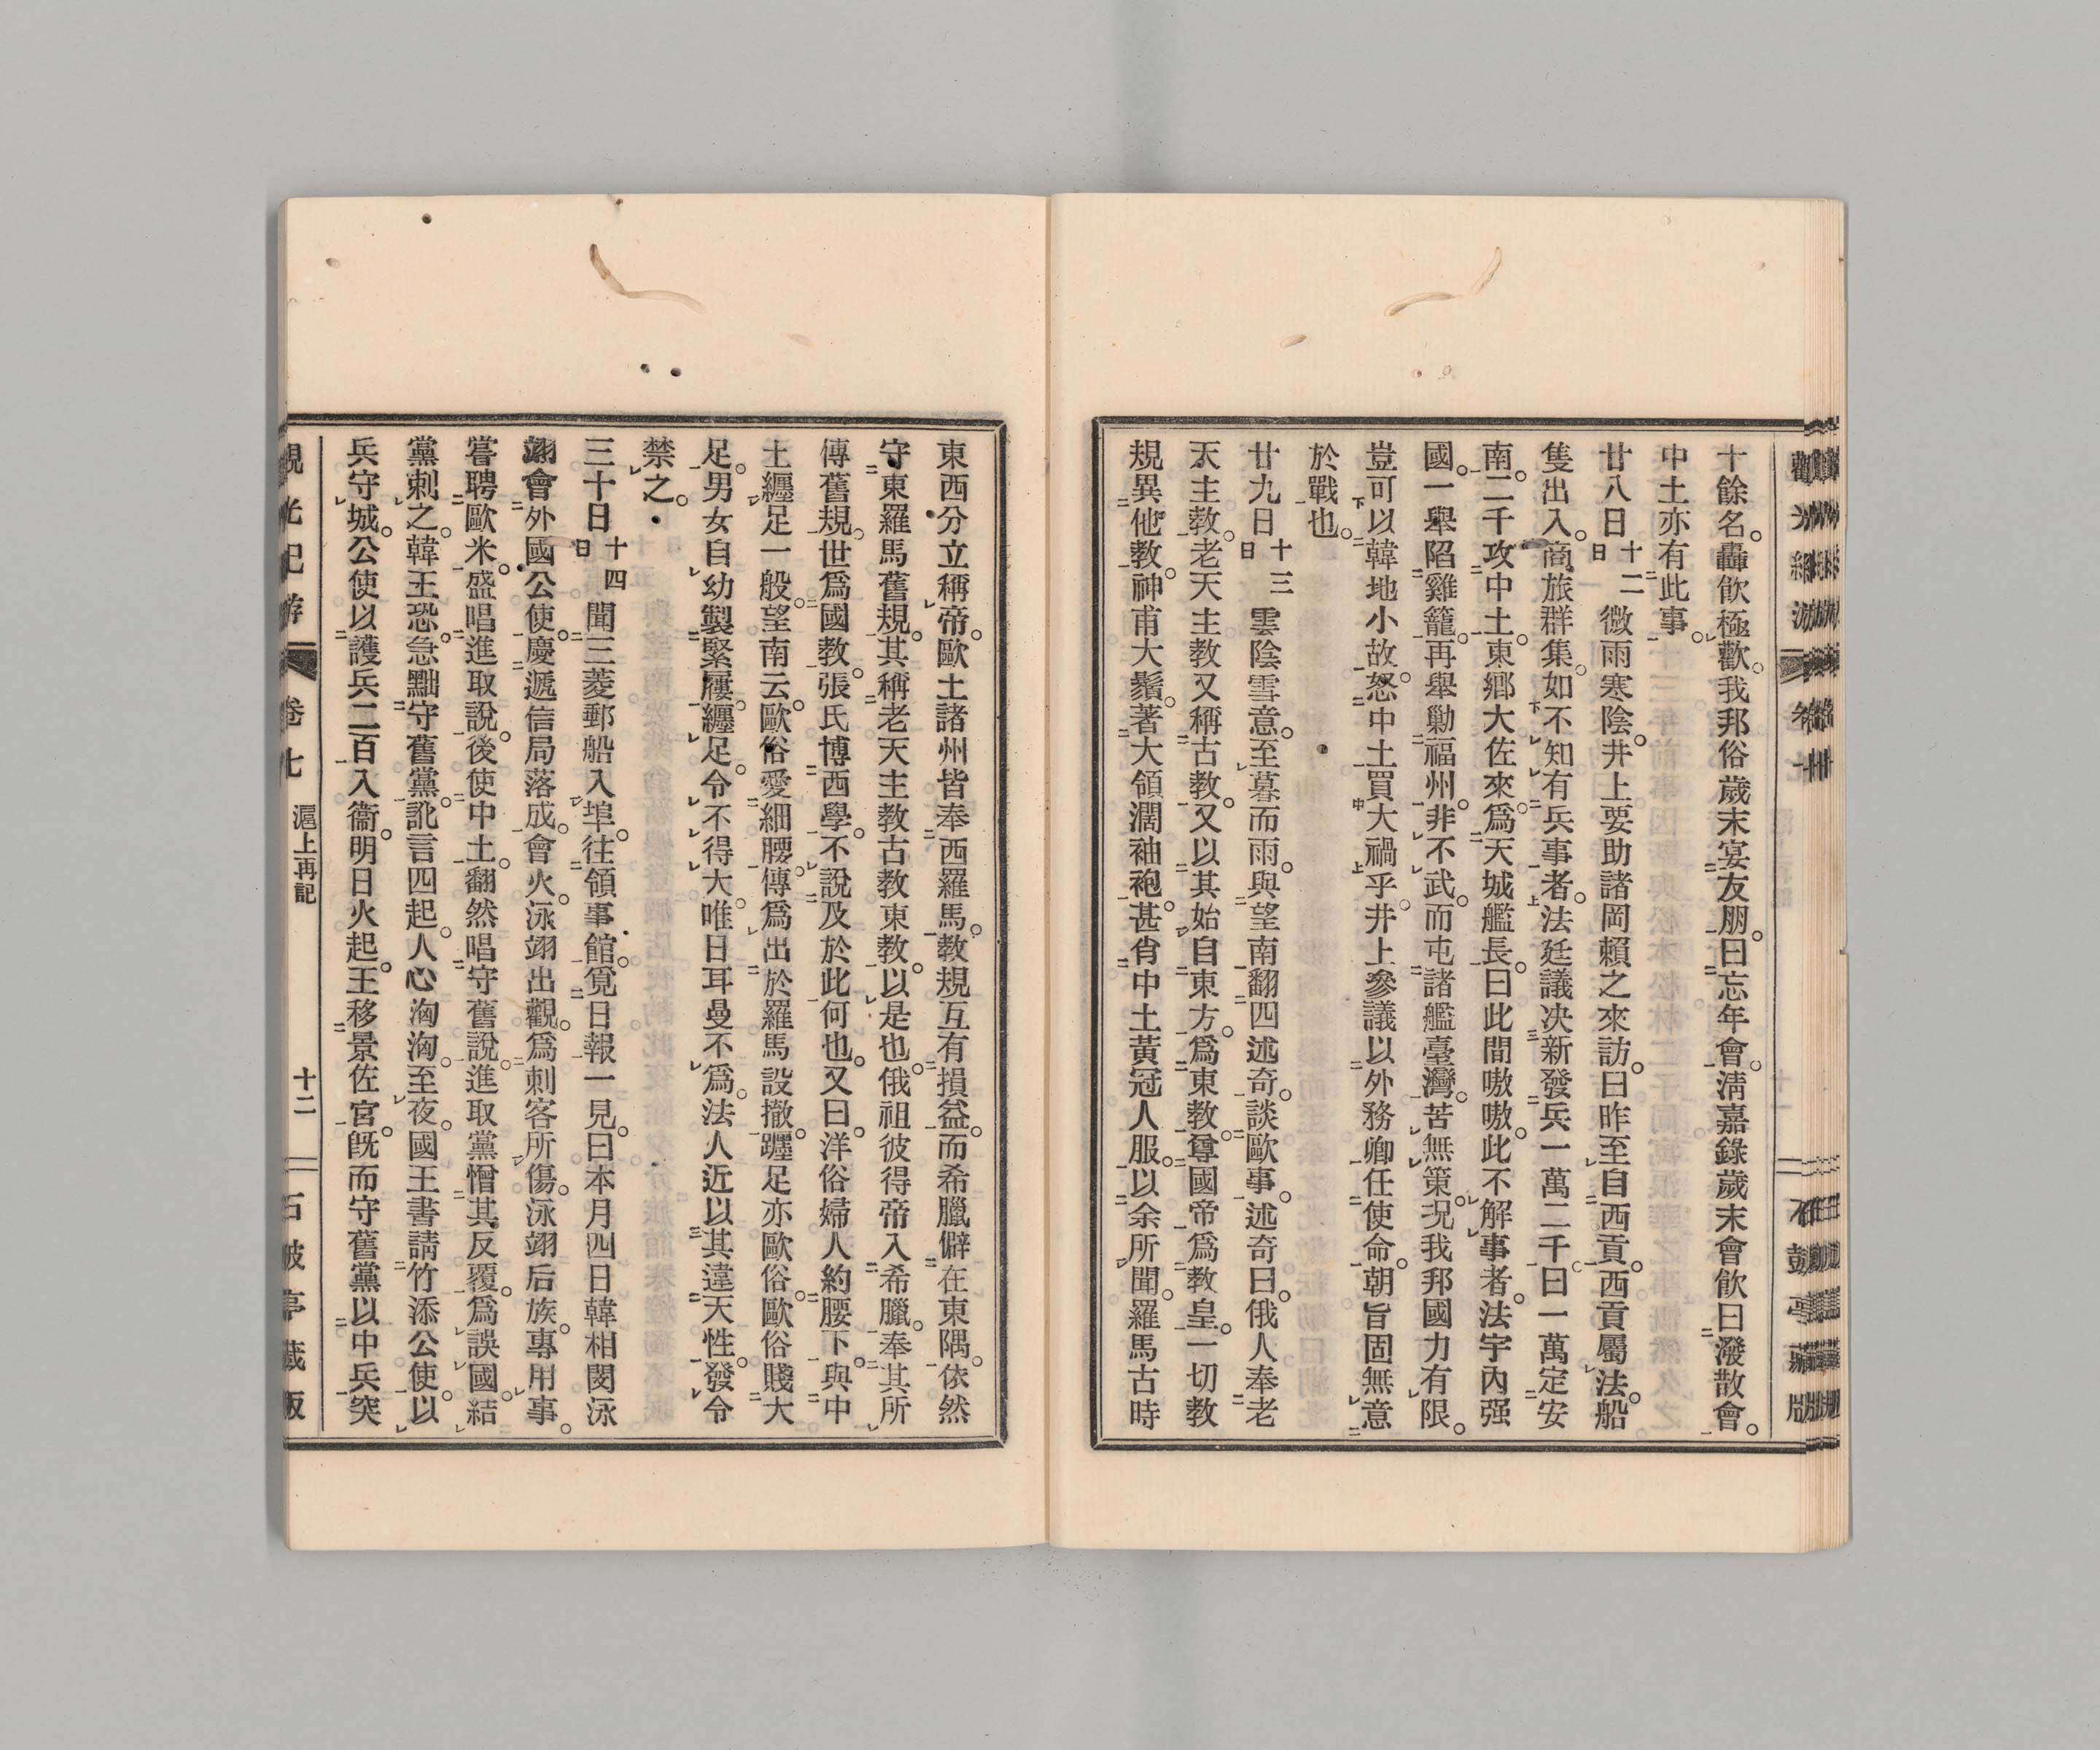 十餘名。轟飮極歡。我邦俗歲末宴友朋。曰忘年會。淸嘉錄歲末會飮曰潑散會。
中土亦有此事。
廿八日十二日微雨寒陰。井上要助諸岡賴之來訪。曰昨至自西貢。西貢屬法。船
隻出入。商旅群集。如不知有兵事者。法廷議决新發兵一萬二千。曰一萬定安
南。二千攻中土。東鄉大佐來。爲天城艦長。曰此間嗷嗷。此不解事者。法宇內强
國。一舉陷雞籠。再舉勦福州。非不武。而屯諸艦臺灣。苦無策。况我邦國力有限。
豈可以韓地小故。怒中土買大禍乎。井上參議以外務卿任使命。朝旨固無意
於戰也。
廿九日十三日雲陰雪意。至暮而雨。與望南翻四述奇。談歐事。述奇曰。俄人奉老
天主敎。老天主敎又稱古敎。又以其始自東方。爲東敎。尊國帝爲敎皇。一切敎
規異他敎。神甫大鬚。著大領濶袖袍。甚肖中土黃冠人服。以余所聞。羅馬古時
東西分立稱帝。歐土諸州皆奉西羅馬。敎規互有損益。而希臘僻在東隅。依然
守東羅馬舊規。其稱老天主敎古敎東敎。以是也。俄祖彼得帝入希臘。奉其所
傳舊規。世爲國敎。張氏博西學。不說及於此何也。又曰。洋俗婦人約腰下。與中
土纏足一般。望南云。歐俗愛細腰。傳爲出於羅馬設撤。躧足亦歐俗。歐俗賤大
足。男女自幼製緊屨。纏足。令不得大。唯日耳曼不爲。法人近以其違天性。發令
禁之。
三十日十四日聞三菱郵船入埠。往領事館。覓日報一見。曰本月四日韓相閔泳
翊會外國公使。慶遞信局落成。會火。泳翊出觀。爲刺客所傷。泳翊后族。專用事。
嘗聘歐米。盛唱進取說。後使中土。翻然唱守舊說。進取黨憎其反覆。爲誤國。結
黨刺之。韓王恐。急黜守舊黨。訛言四起。人心洶洶。至夜。國王書請竹添公使。以
兵守城。公使以護兵二百入衞。明日火起。王移景佐宮。旣而守舊黨以中兵突
觀光紀游 卷七 滬上再記 十二 石皷亭藏版